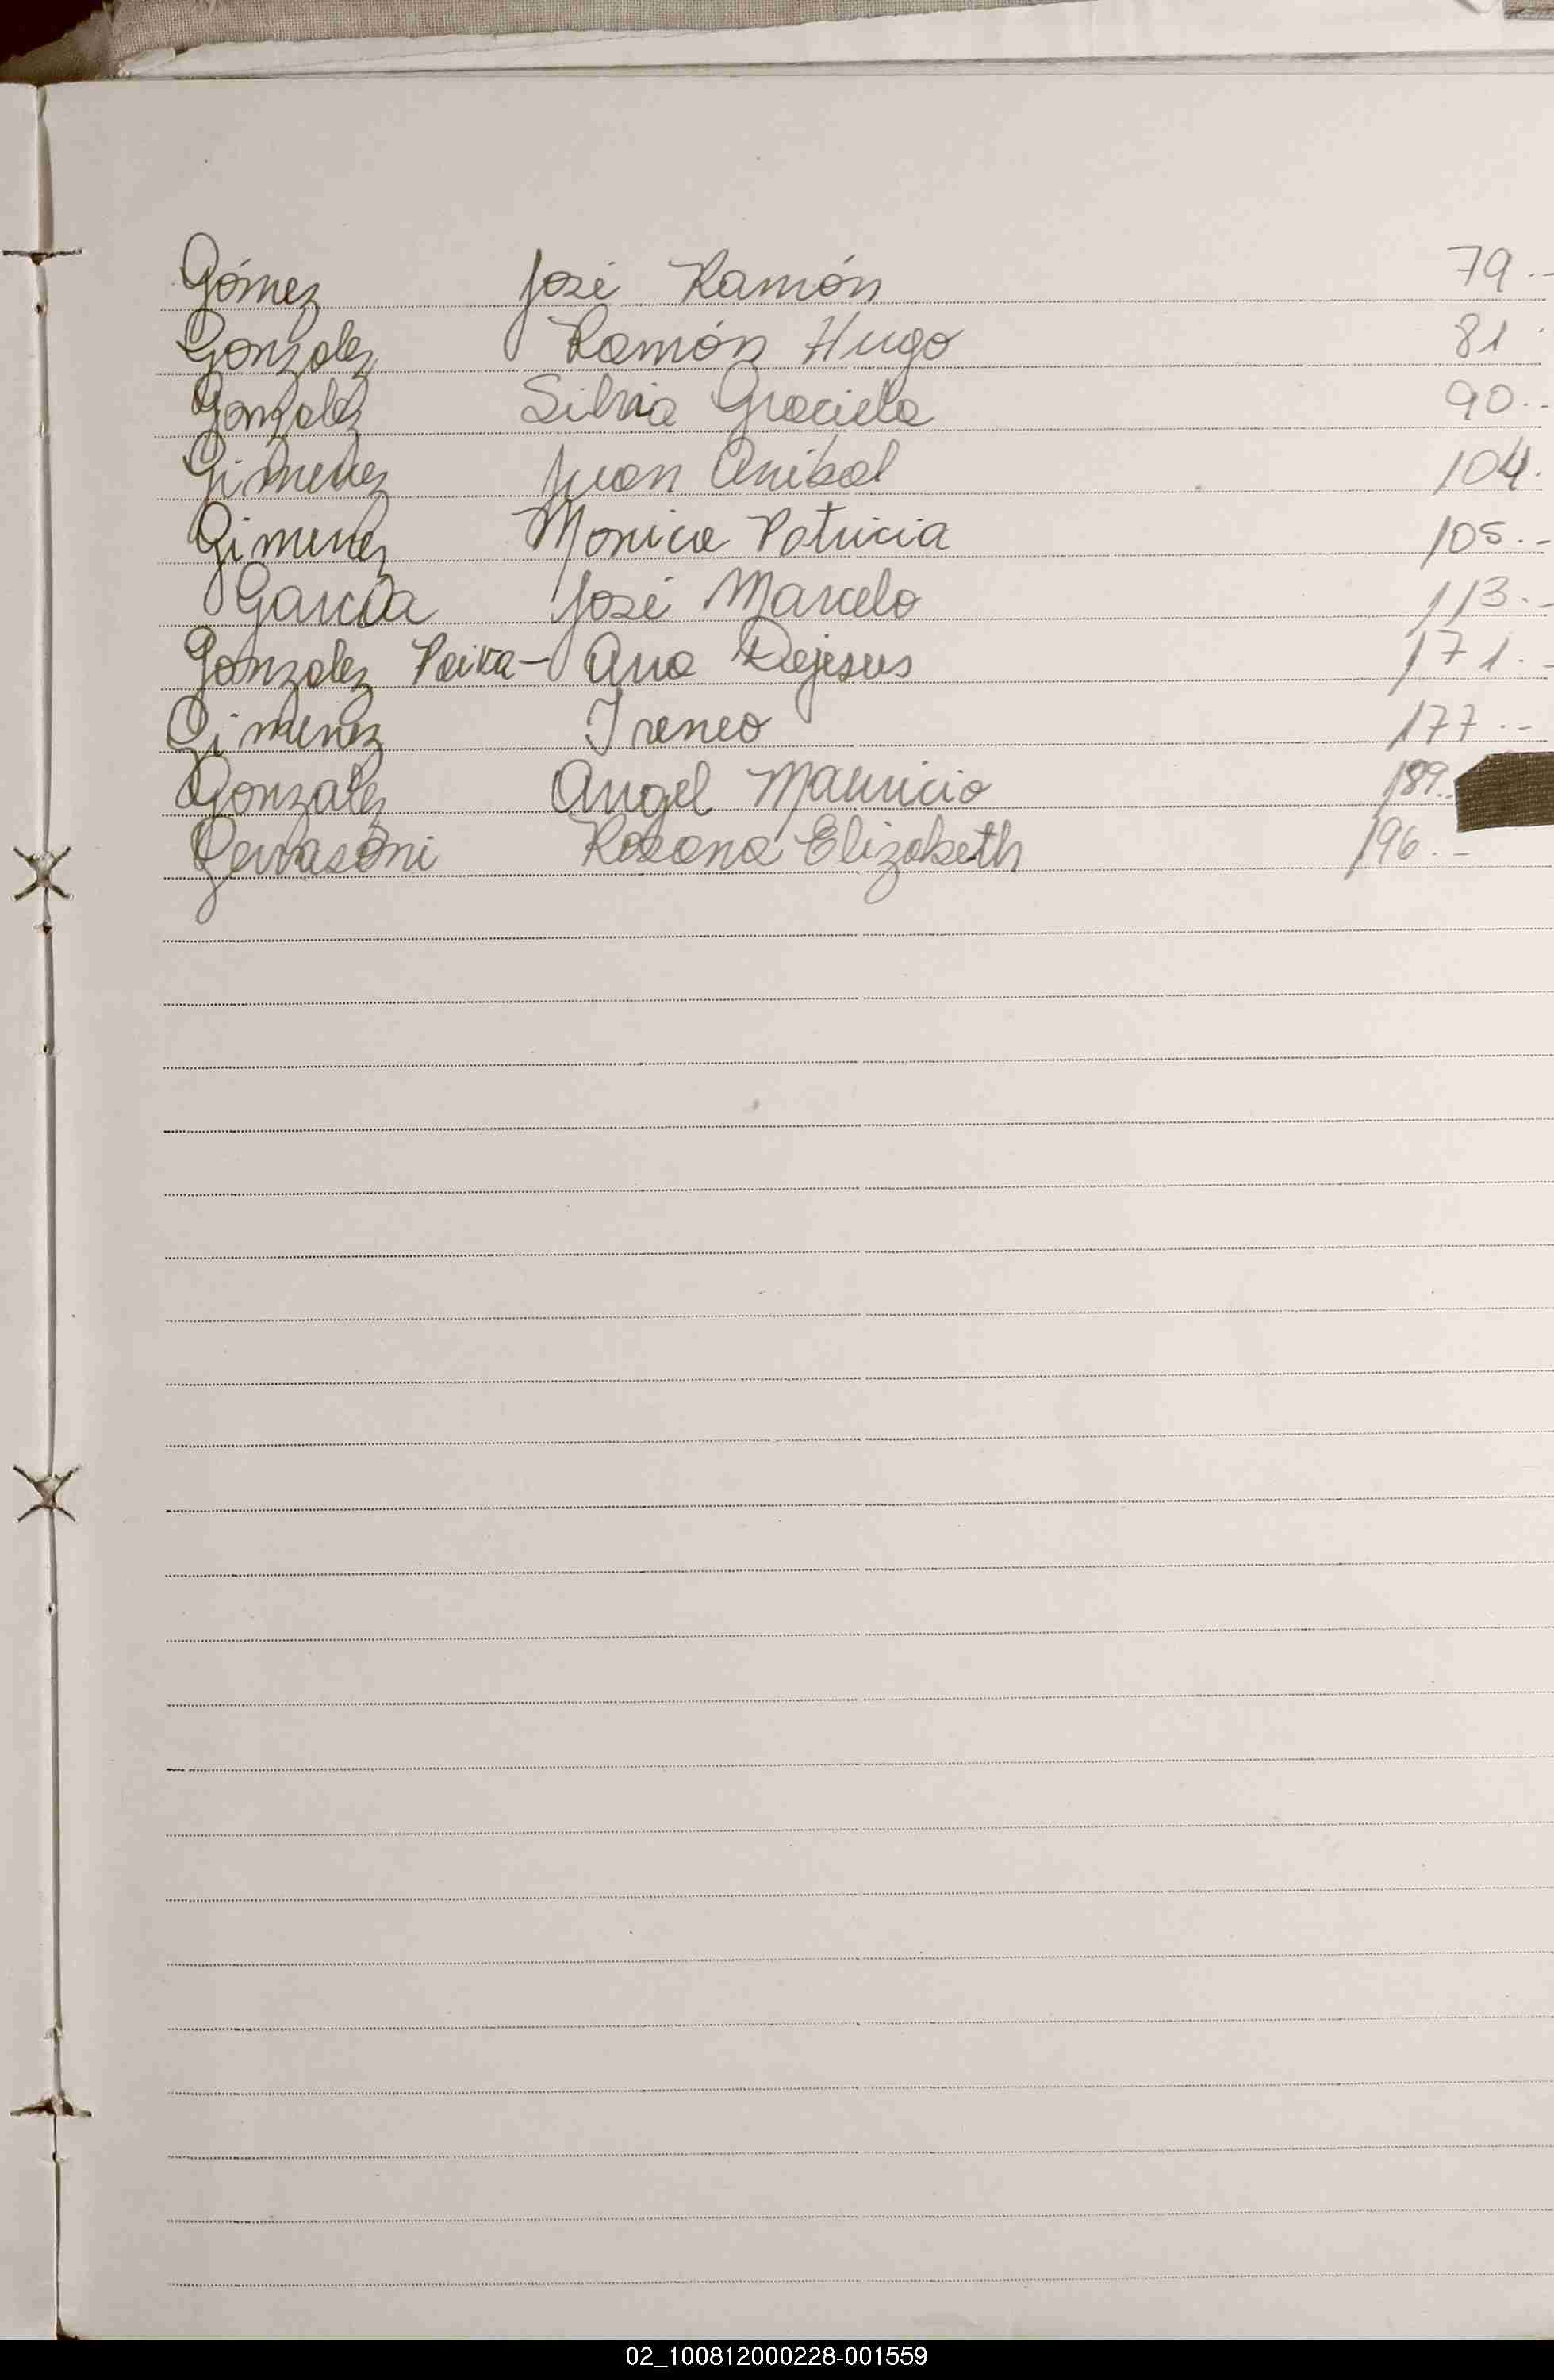 Gómez José Ramón 79.-
Gonzalez Ramón Hugo 81.
Gonzalez Silvia Graciela 90.-
Gimenez Juan Anibal 104.
Gimenez Monica Patricia 105.-
García José Marcelo 113.-
Gonzalez Paiva- Ana Dejesus 171.-
Gimenez Ireneo 177.-
Gonzalez Angel Mauricio 189..
Gervasoni Rosana Elizabeth 196.-
02_100812000228-001559